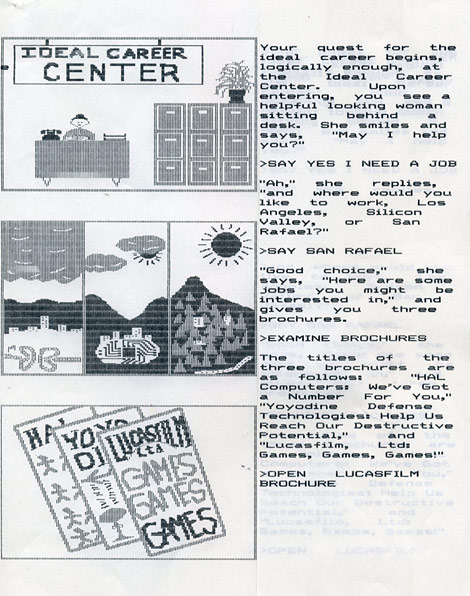 IDEAL CAREER
CENTER
Your quest for the
ideal career begins,
logically enough, at
the Ideal Career
Center. Upon
entering, you see a
helpful looking woman
sitting behind a
desk. She smiles and
says, "May I help
you?"
>SAY YES I NEED A JOB
"Ah," she replies,
"and where would you
like to work, Los
Angeles, Silicon
Valley, or San
Rafael?"
>SAY SAN RAFAEL
"Good choice," she
says, "Here are some
jobs you might be
interested in," and
gives you three
brochures.
>EXAMINE BROCHURES
The titles of the
three brochures are
as follows: "HAL
Computers: We've Got
a Number For You,"
"Yoyodine Defense
Technologies: Help Us
Reach Our Destructive
Potential," and
"Lucasfilm, Ltd:
Games, Games, Games!"
>OPEN LUCASFILM
BROCHURE
HA
YOYO
DI
LUCASFILM
Ltd
GAMES
GAMES
GAMES